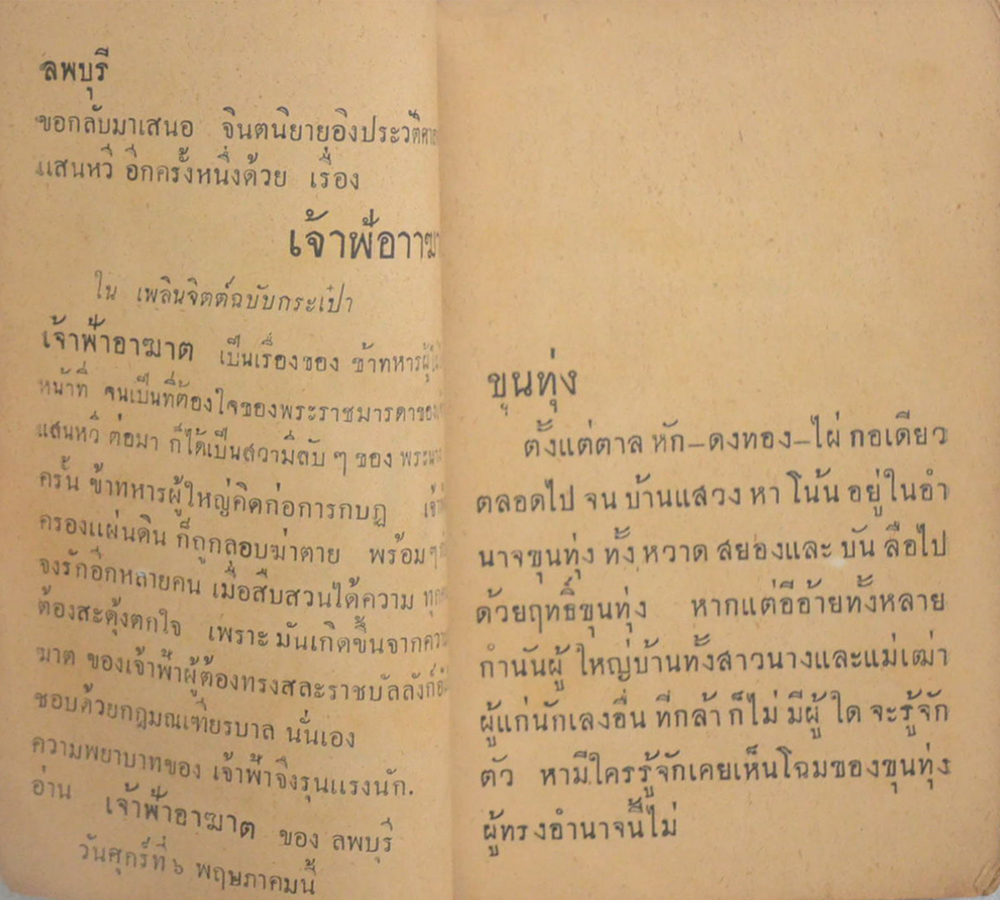 ลพบุรี
ขอกลับมาเสนอ จินตนิยายอิงประวัติศา
แสนหวี อีกครั้งหนึ่งด้วย เรื่อง
เจ้าฟ้อาาฆา
ใน เพลินจิตต์ฉบับกระเป๋า
เจ้าฟ้าอาฆาต เป็นเรื่องของ ข้าทหารผู้
หน้าที่ จนเป็นที่ต้องใจของพระราชมารดาของ
แสนหวี ต่อมา ก็ได้เป็นสวามีลับ ๆ ของ พระนาง
ครั้น ข้าทหารผู้ใหญ่คิดก่อการกบฏ
ครองแผ่นดิน ก็ถูกลอบฆ่าตาย พร้อมๆ
จงรักอีกหลายคน เมื่อสืบสวนได้ความ ทุก
ต้องสะดุ้งตกใจ เพราะ มันเกิดขึ้นจากควา
ฆาต ของเจ้าฟ้าผู้ต้องทรงสละราชบัลลังก์
ชอบด้วยกฎมณเฑียรบาล นั่นเอง
ความพยาบาทของ เจ้าฟ้าจึงรุนแรงนัก.
อ่าน เจ้าฟ้าอาฆาต ของ ลพบุรี
วันศุกร์ที่ ๖ พฤษภาคมนี้
ขุนทุ่ง
ตั้งแต่ตาล หัก–ดงทอง–ไผ่ กอเดียว
ตลอดไป จน บ้านแสวง หา โน้น อยู่ในอำ
นาจขุนทุ่ง ทั้ง หวาด สยองและ บัน ลือไป
ด้วยฤทธิ์ขุนทุ่ง หากแต่อีอ้ายทั้งหลาย
กำนันผู้ ใหญ่บ้านทั้งสาวนางและแม่เฒ่า
ผู้แก่นักเลงอื่น ที่กล้า ก็ไม่ มีผู้ ใด จะรู้จัก
ตัว หามีใครรู้จักเคยเห็นโฉมของขุนทุ่ง
ผู้ทรงอำนาจนี้ไม่